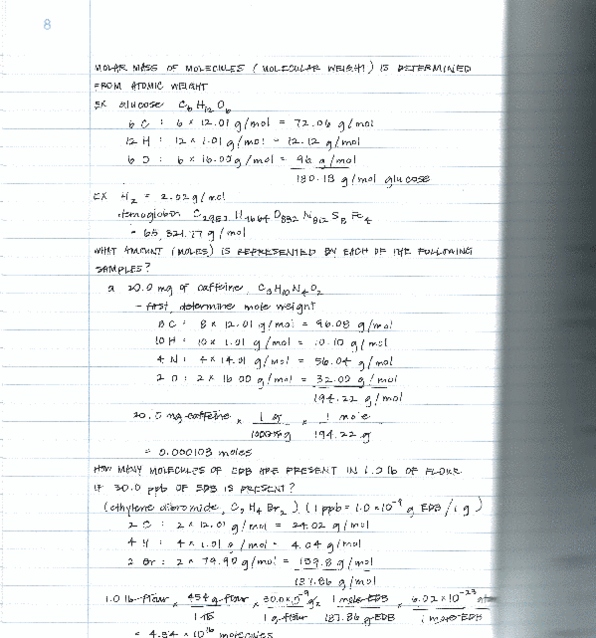 8
MOLAR MASS OF MOLECULES (MOLECULAR WEIGHT) IS DETERMINED
FROM ATOMIC WEIGHT
EX glucose C6 H12 O6
6 C : 6 × 12.01 g/mol = 72.06 g/mol
12 H : 12 × 1.01 g/mol = 12.12 g/mol
6 O : 6 × 16.00 g/mol = 96 g/mol
180.18 g/mol glucose
EX H2 = 2.02 g/mol
Hemoglobin C2952 H4664 O832 N812 S8 Fe4
= 65,321.77 g/mol
WHAT AMOUNT (MOLES) IS REPRESENTED BY EACH OF THE FOLLOWING
SAMPLES?
a 20.0 mg of caffeine, C8 H10 N4 O2
- first, determine mole weight
8 C : 8 × 12.01 g/mol = 96.08 g/mol
10 H : 10 × 1.01 g/mol = 10.10 g/mol
4 N : 4 × 14.01 g/mol = 56.04 g/mol
2 O : 2 × 16.00 g/mol = 32.00 g/mol
194.22 g/mol
20.0 mg caffeine × 1 g × 1 mole
1000 mg 194.22 g
= 0.000103 moles
HOW MANY MOLECULES OF EDB ARE PRESENT IN 1.0 lb OF FLOUR
IF 30.0 ppb OF EDB IS PRESENT?
(ethylene dibromide, C2 H4 Br2) (1 ppb = 1.0 × 10^-9 g EDB / 1 g)
2 C : 2 × 12.01 g/mol = 24.02 g/mol
4 H : 4 × 1.01 g/mol = 4.04 g/mol
2 Br : 2 × 79.90 g/mol = 159.8 g/mol
187.86 g/mol
1.0 lb flour × 454 g flour × 30.0 × 10^-9 g × 1 mole EDB × 6.02 × 10^-23
1 lb 1 g flour 187.86 g EDB 1 mole EDB
= 4.34 × 10^16 molecules